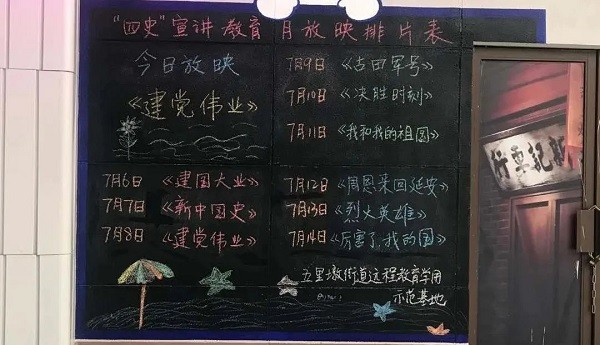 “四史”宣讲教育 月放映排片表
今日放映
《建党伟业》
7月6日 《建国大业》
7月7日 《新中国史》
7月8日 《建党伟业》
7月9日 《古田军号》
7月10日 《决胜时刻》
7月11日 《我和我的祖国》
7月12日 《周恩来回延安》
7月13日 《烈火英雄》
7月14日 《厉害了,我的国》
五里墩街道远程教育学用
示范基地